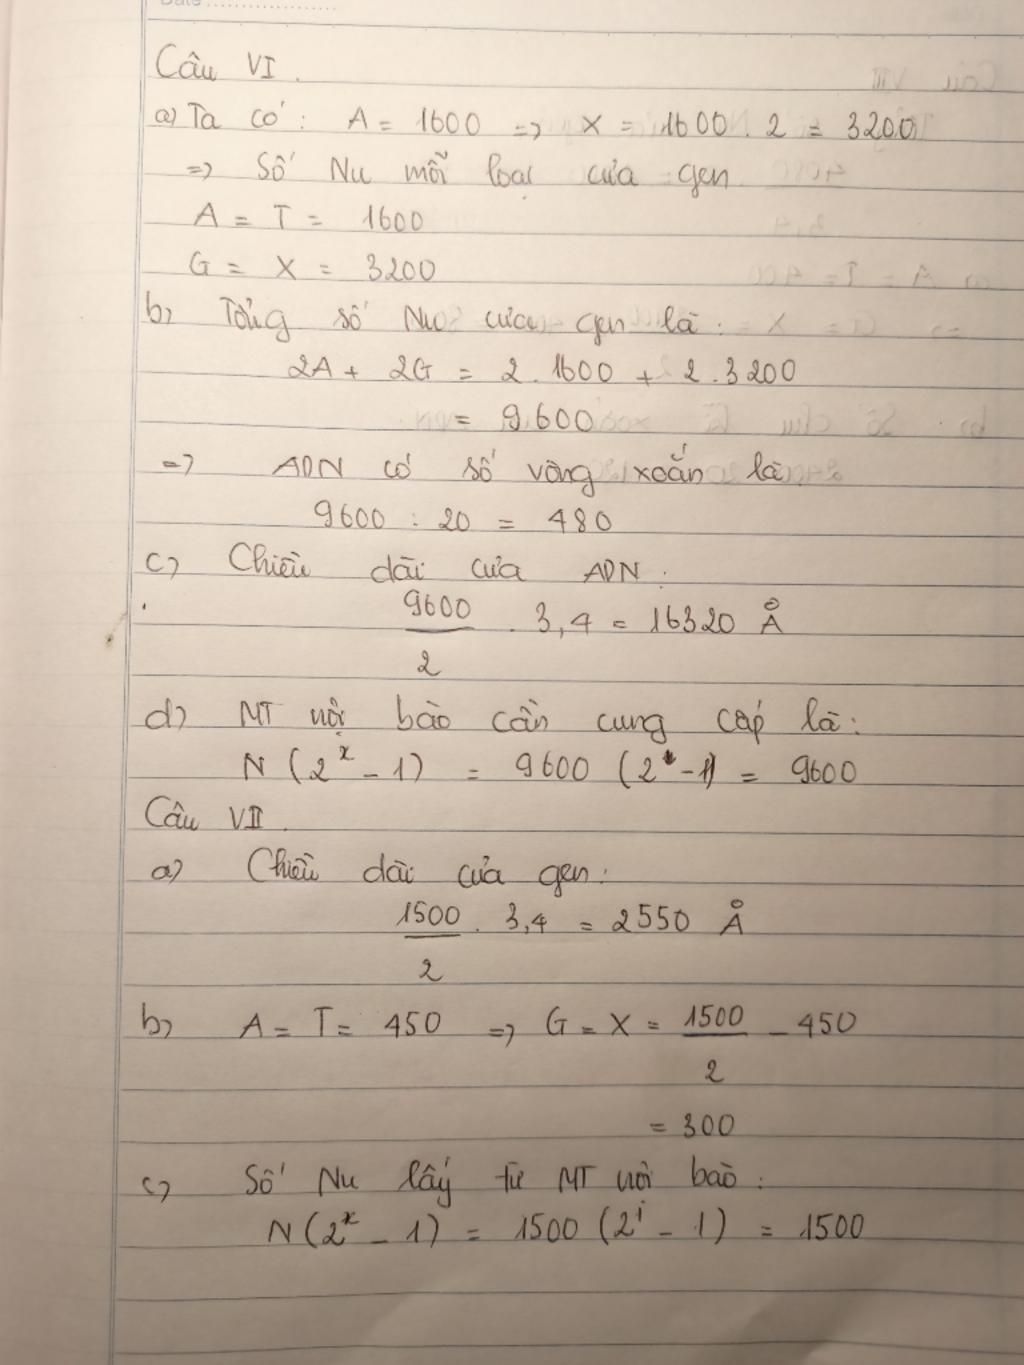 Date
Câu VI.
a) Ta có: A = 1600 => X = 1600 . 2 = 3200
=> Số Nu mỗi loại của gen
A = T = 1600
G = X = 3200
b) Tổng số Nu của gen là:
2A + 2G = 2 . 1600 + 2 . 3200
= 9600
=> ADN có số vòng xoắn là
9600 : 20 = 480
c) Chiều dài của ADN:
9600/2 . 3,4 = 16320 Å
d) MT nội bào cần cung cấp là:
N (2^x - 1) = 9600 (2 - 1) = 9600
Câu VII.
a) Chiều dài của gen:
1500/2 . 3,4 = 2550 Å
b) A = T = 450 => G = X = 1500/2 - 450
= 300
c) Số Nu lấy từ MT nội bào:
N (2^x - 1) = 1500 (2^1 - 1) = 1500